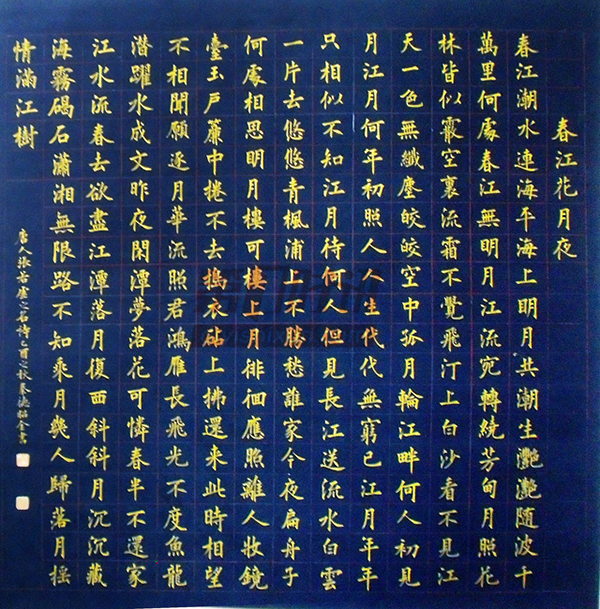 春江花月夜
春江潮水連海平海上明月共潮生灧灧隨波千
萬里何處春江無明月江流宛轉繞芳甸月照花
林皆似霰空裏流霜不覺飛汀上白沙看不見江
天一色無纖塵皎皎空中孤月輪江畔何人初見
月江月何年初照人人生代代無窮已江月年年
只相似不知江月待何人但見長江送流水白雲
一片去悠悠青楓浦上不勝愁誰家今夜扁舟子
何處相思明月樓可樓上月徘徊應照離人妝鏡
臺玉戶簾中捲不去搗衣砧上拂還来此時相望
不相聞願逐月華流照君鴻雁長飛光不度魚龍
潛躍水成文昨夜閑潭夢落花可憐春半不還家
江水流春去欲盡江潭落月復西斜斜月沉沉藏
海霧碣石瀟湘無限路不知乘月幾人歸落月搖
情滿江樹
唐人張若虛之名詩乙酉之秋金書